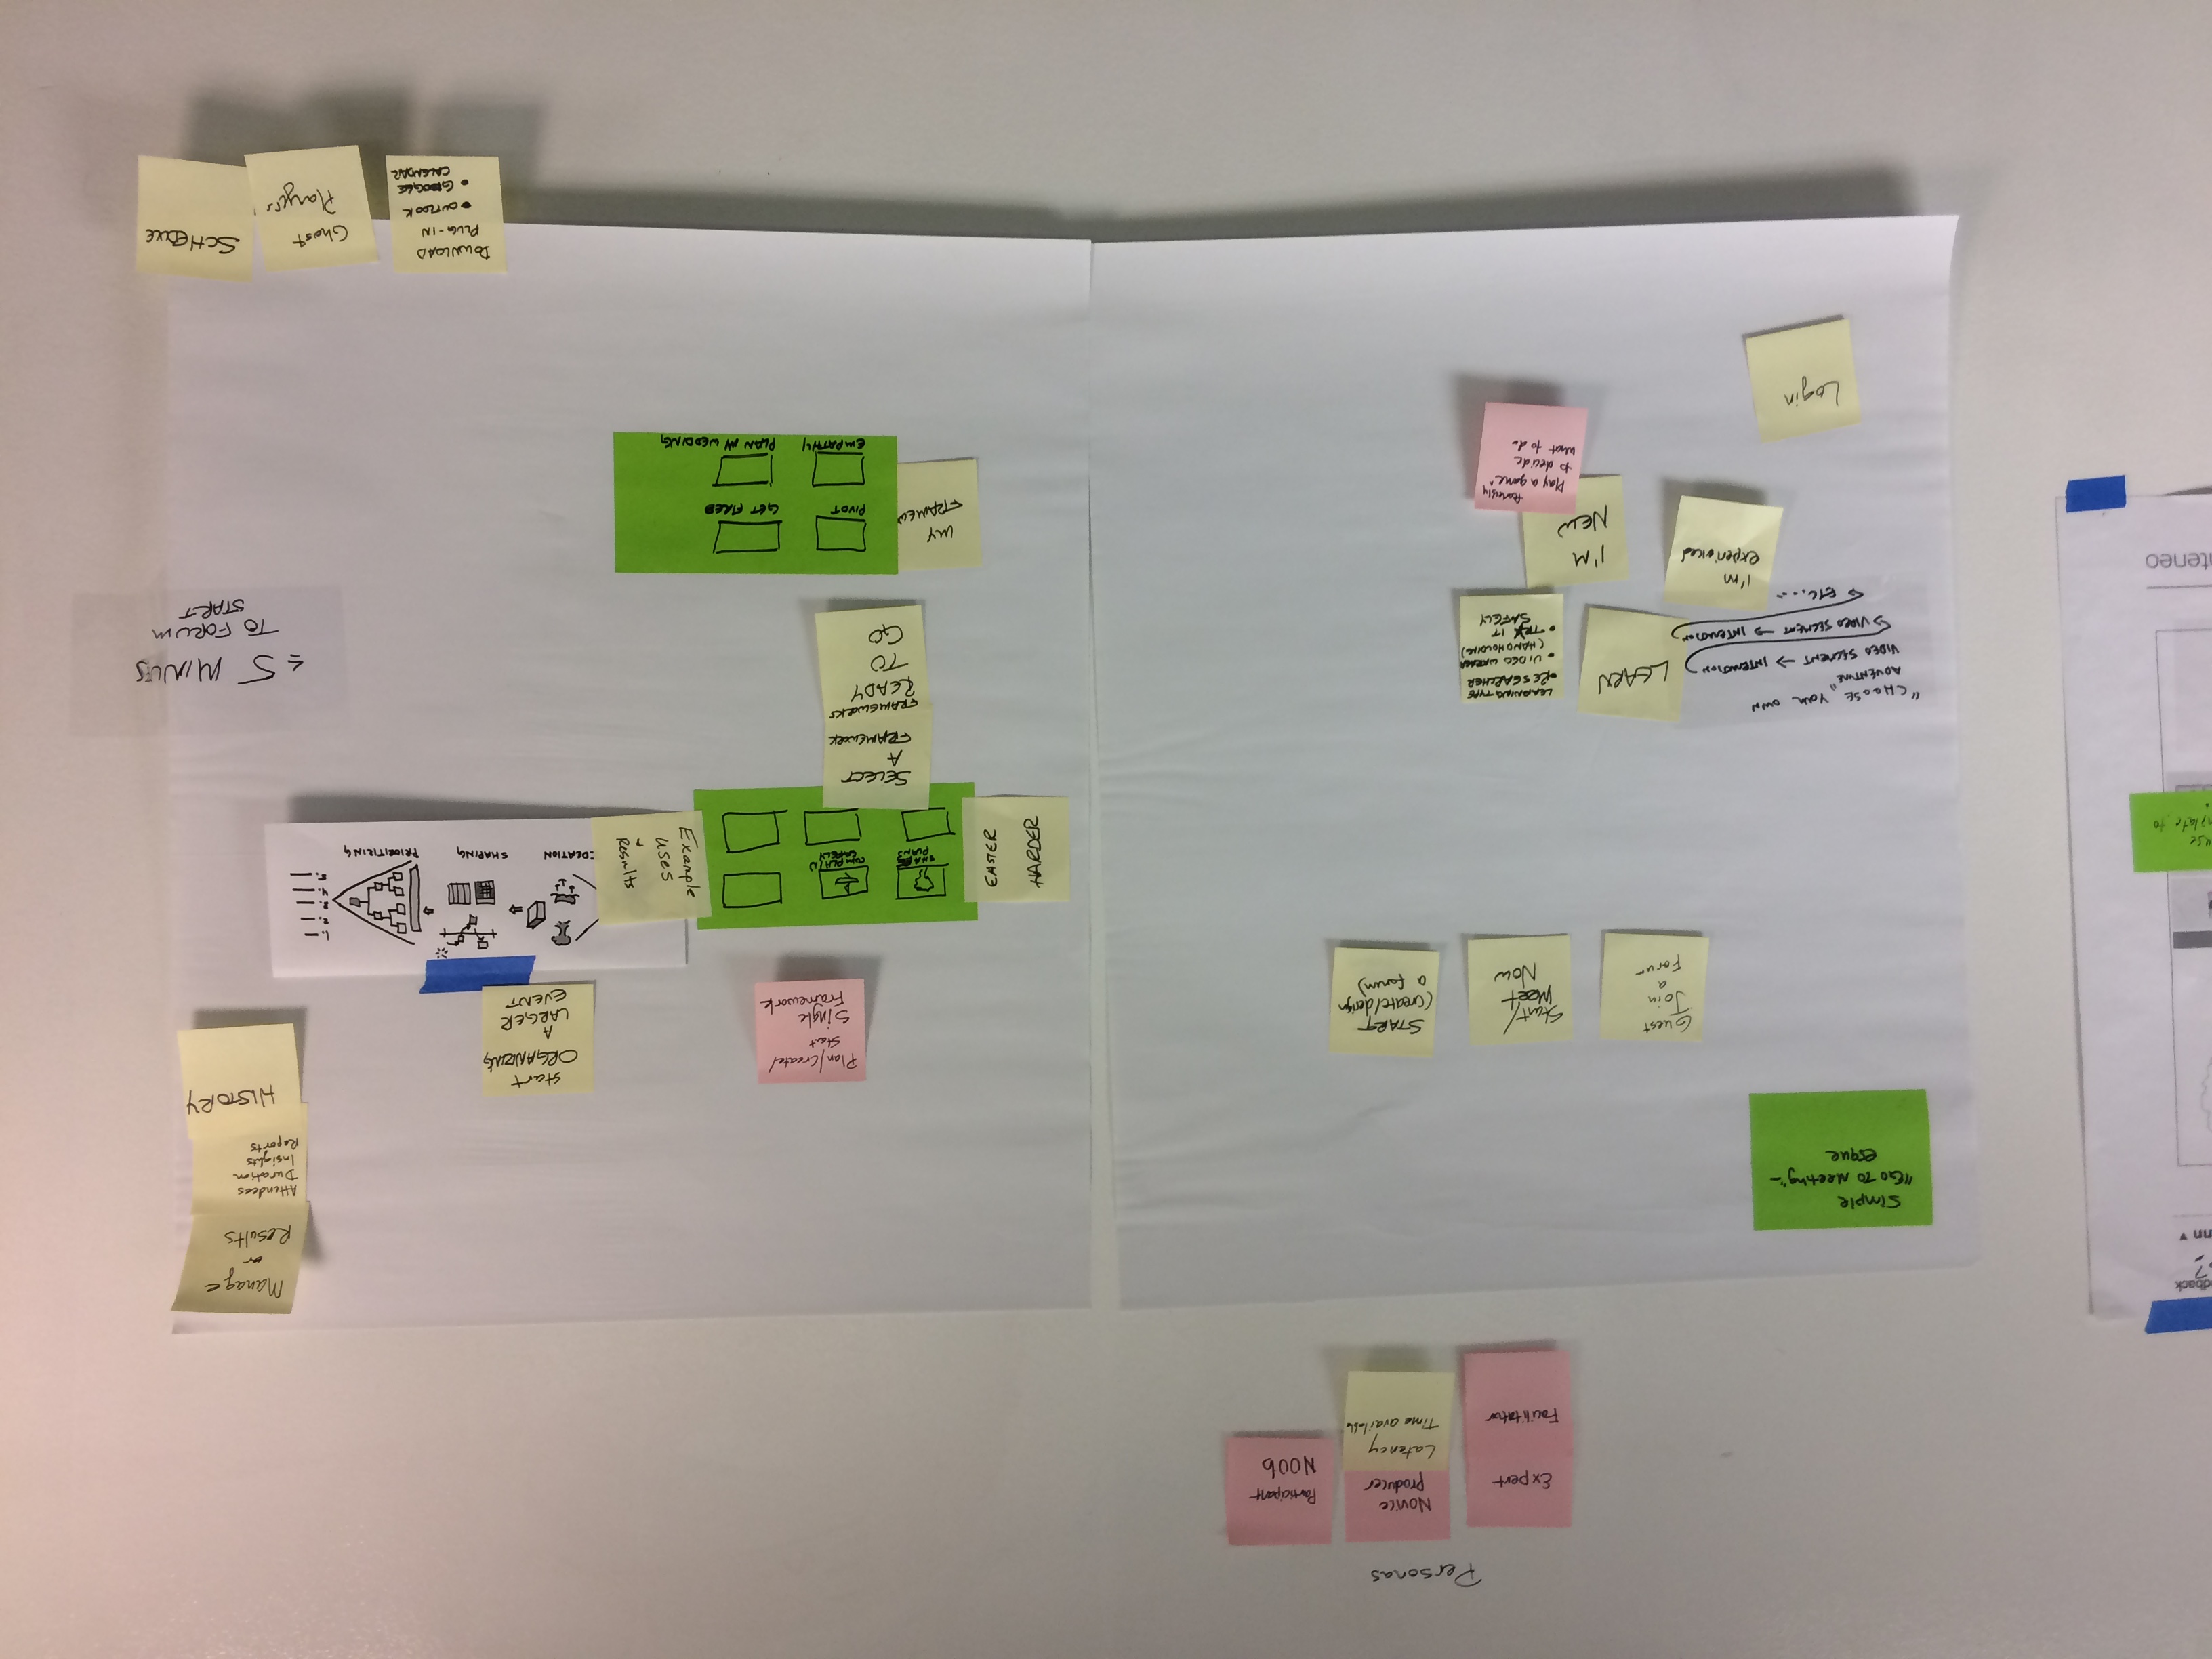 Personas
Expert
Facilitator
Novice
producer
Latency
Time available
Participant
Noob
dback
s?
nn
use
plate to
nteneo
Simple
"Go To Meeting"-
esque
Guest
Join
a
Forum
Start/
Meet
Now
START
(create/design
a forum)
"CHOOSE YOUR OWN
ADVENTURE"
VIDEO SEGMENT → INTERACTION
VIDEO SEGMENT → INTERACTION
ETC....
LEARN
LEARNING TYPE
• RESEARCHER
• VIDEO
(HANDHOLDING)
• TRY IT
SAFELY
I'm
experienced
I'M
NEW
fearlessly
Play a game^
to decide
what to do
Login
Manage
or
Results
Attendees
Duration
Insights
Reports
HISTORY
Plan/Create/
Start
Single
Framework
Start
ORGANIZING
A
LARGER
EVENT
EASIER
HARDER
SHARE
PLANS
COMPLAIN
SAFELY
Example
uses
Results
IDEATION
SHAPING
PRIORITIZING
1.
2.
3.
4.
5.
SELECT
A
FRAMEWORK
FRAMEWORKS
READY
TO
GO
≤ 5 MINUS
TO FORUM
START
MY
FRAMEW
PIVOT
GET FIRED
EMPATHY
PLAN MY WEDDING
DOWNLOAD
PLUG-IN
• OUTLOOK
• GOOGLE
CALENDAR
Ghost
Players
SCHEDULE